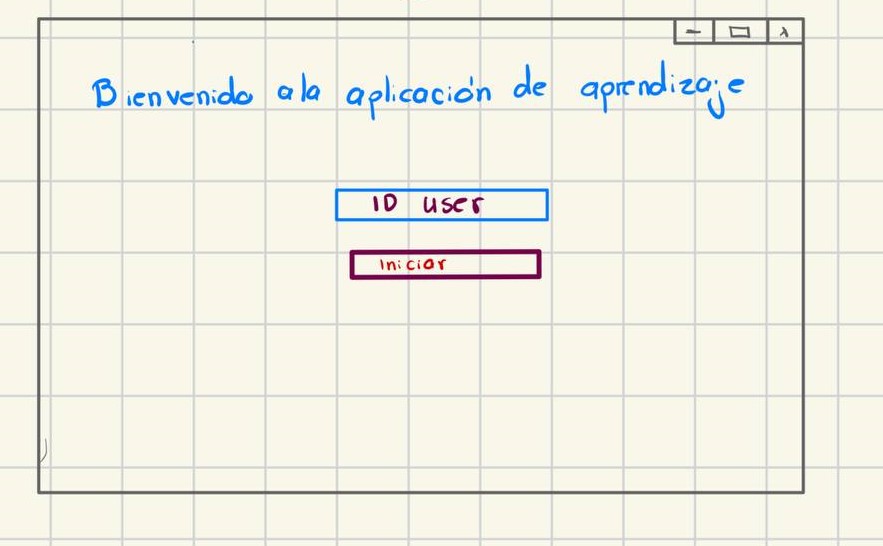 Bienvenido a la aplicación de aprendizaje
ID user
Iniciar